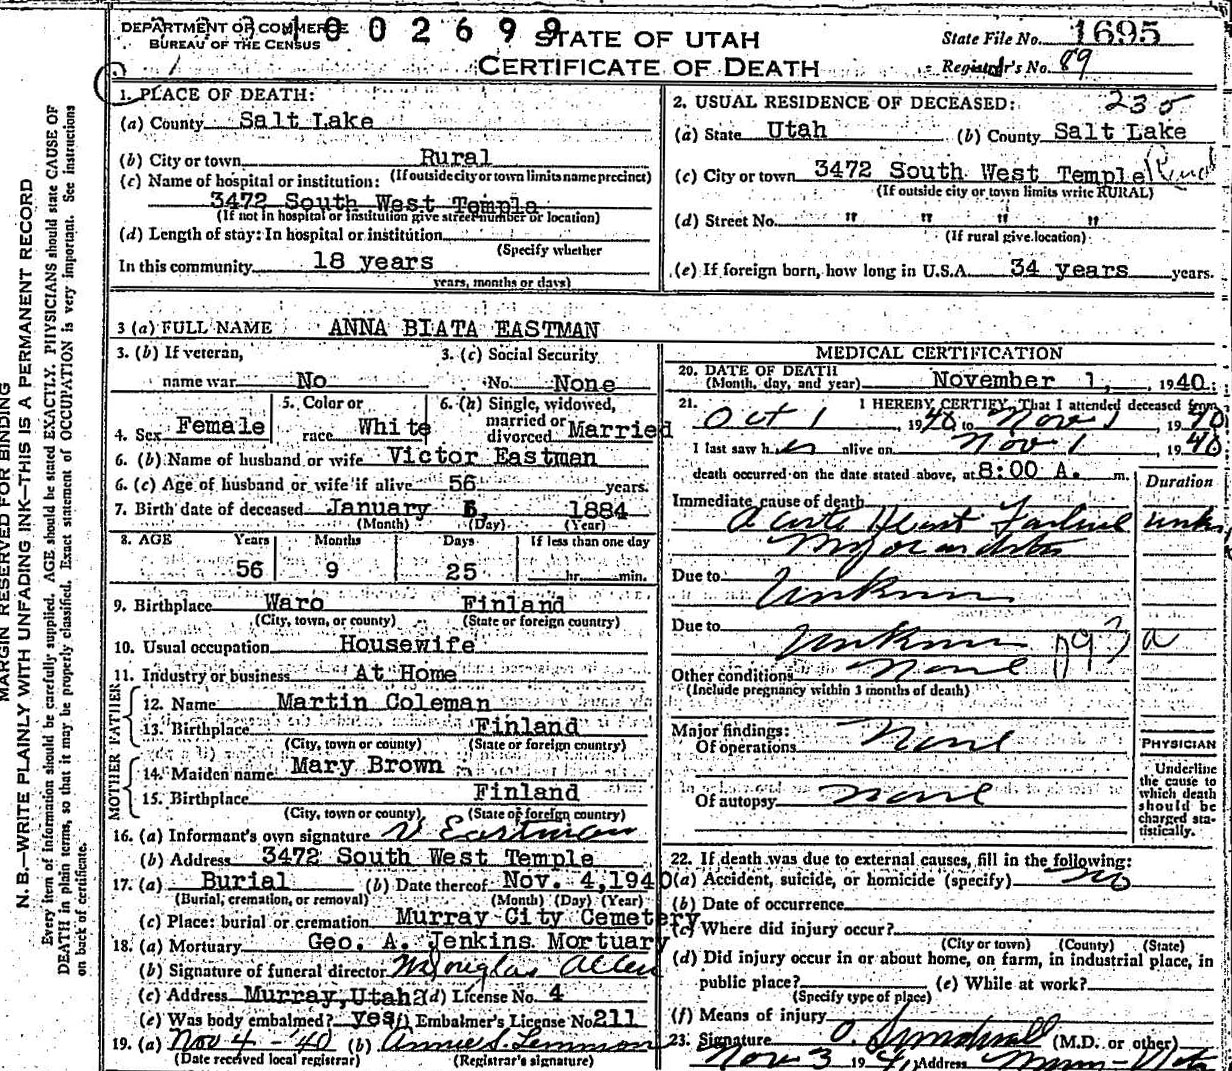 DEPARTMENT OF COMMERCE
BUREAU OF THE CENSUS
1002699
STATE OF UTAH
CERTIFICATE OF DEATH
State File No. 1695
Registrar's No. 89
MARGIN RESERVED FOR BINDING
N. B.—WRITE PLAINLY WITH UNFADING INK—THIS IS A PERMANENT RECORD
Every item of information should be carefully supplied. AGE should be stated EXACTLY. PHYSICIANS should state CAUSE OF
DEATH in plain terms, so that it may be properly classified. Exact statement of OCCUPATION is very important. See instructions
on back of certificate.
1. PLACE OF DEATH:
(a) County Salt Lake
(b) City or town Rural
(If outside city or town limits name precinct)
(c) Name of hospital or institution:
3472 South West Temple
(If not in hospital or institution give street number or location)
(d) Length of stay: In hospital or institution
(Specify whether
In this community 18 years
years, months or days)
2. USUAL RESIDENCE OF DECEASED: 235
(a) State Utah (b) County Salt Lake
(c) City or town 3472 South West Temple (Rural
(If outside city or town limits write RURAL)
(d) Street No. " " " "
(If rural give location)
(e) If foreign born, how long in U.S.A. 34 years years.
3 (a) FULL NAME ANNA BIATA EASTMAN
3. (b) If veteran, 3. (c) Social Security
name war No No. None
4. Sex Female 5. Color or race White 6. (a) Single, widowed, married or divorced Married
6. (b) Name of husband or wife Victor Eastman
6. (c) Age of husband or wife if alive 56 years.
7. Birth date of deceased January 6, 1884
(Month) (Day) (Year)
8. AGE Years Months Days If less than one day
56 9 25 hr. min.
9. Birthplace Waro Finland
(City, town, or county) (State or foreign country)
10. Usual occupation Housewife
11. Industry or business At Home
FATHER
12. Name Martin Coleman
13. Birthplace Finland
(City, town or county) (State or foreign country)
MOTHER
14. Maiden name Mary Brown
15. Birthplace Finland
(City, town or county) (State of foreign country)
16. (a) Informant's own signature V Eastman
(b) Address 3472 South West Temple
17. (a) Burial (b) Date thereof Nov. 4, 1940
(Burial, cremation, or removal) (Month) (Day) (Year)
(c) Place: burial or cremation Murray City Cemetery
18. (a) Mortuary Geo. A. Jenkins Mortuary
(b) Signature of funeral director M Douglas Allen
(c) Address Murray, Utah (d) License No. 4
(e) Was body embalmed? yes (f) Embalmer's License No. 211
19. (a) Nov 4 - '40 (b) Annie S. Lemmon
(Date received local registrar) (Registrar's signature)
MEDICAL CERTIFICATION
20. DATE OF DEATH
(Month, day, and year) November 1, 1940
21. I HEREBY CERTIFY, That I attended deceased from
Oct 1, 1940 to Nov 1, 1940
I last saw her alive on Nov 1 1940
death occurred on the date stated above, at 8:00 A. m.
Duration
Immediate cause of death
Acute Heart Failure unkn
Myocarditis
Due to Unknown
Due to Unknown 93 a
Other conditions None
(Include pregnancy within 3 months of death)
Major findings:
Of operations None
Of autopsy none
PHYSICIAN
Underline
the cause to
which death
should be
charged sta-
tistically.
22. If death was due to external causes, fill in the following:
(a) Accident, suicide, or homicide (specify) No
(b) Date of occurrence
(c) Where did injury occur?
(City or town) (County) (State)
(d) Did injury occur in or about home, on farm, in industrial place, in
public place? (e) While at work?
(Specify type of place)
(f) Means of injury
23. Signature O. Sundwall (M.D. or other)
Nov 3 1940 Address